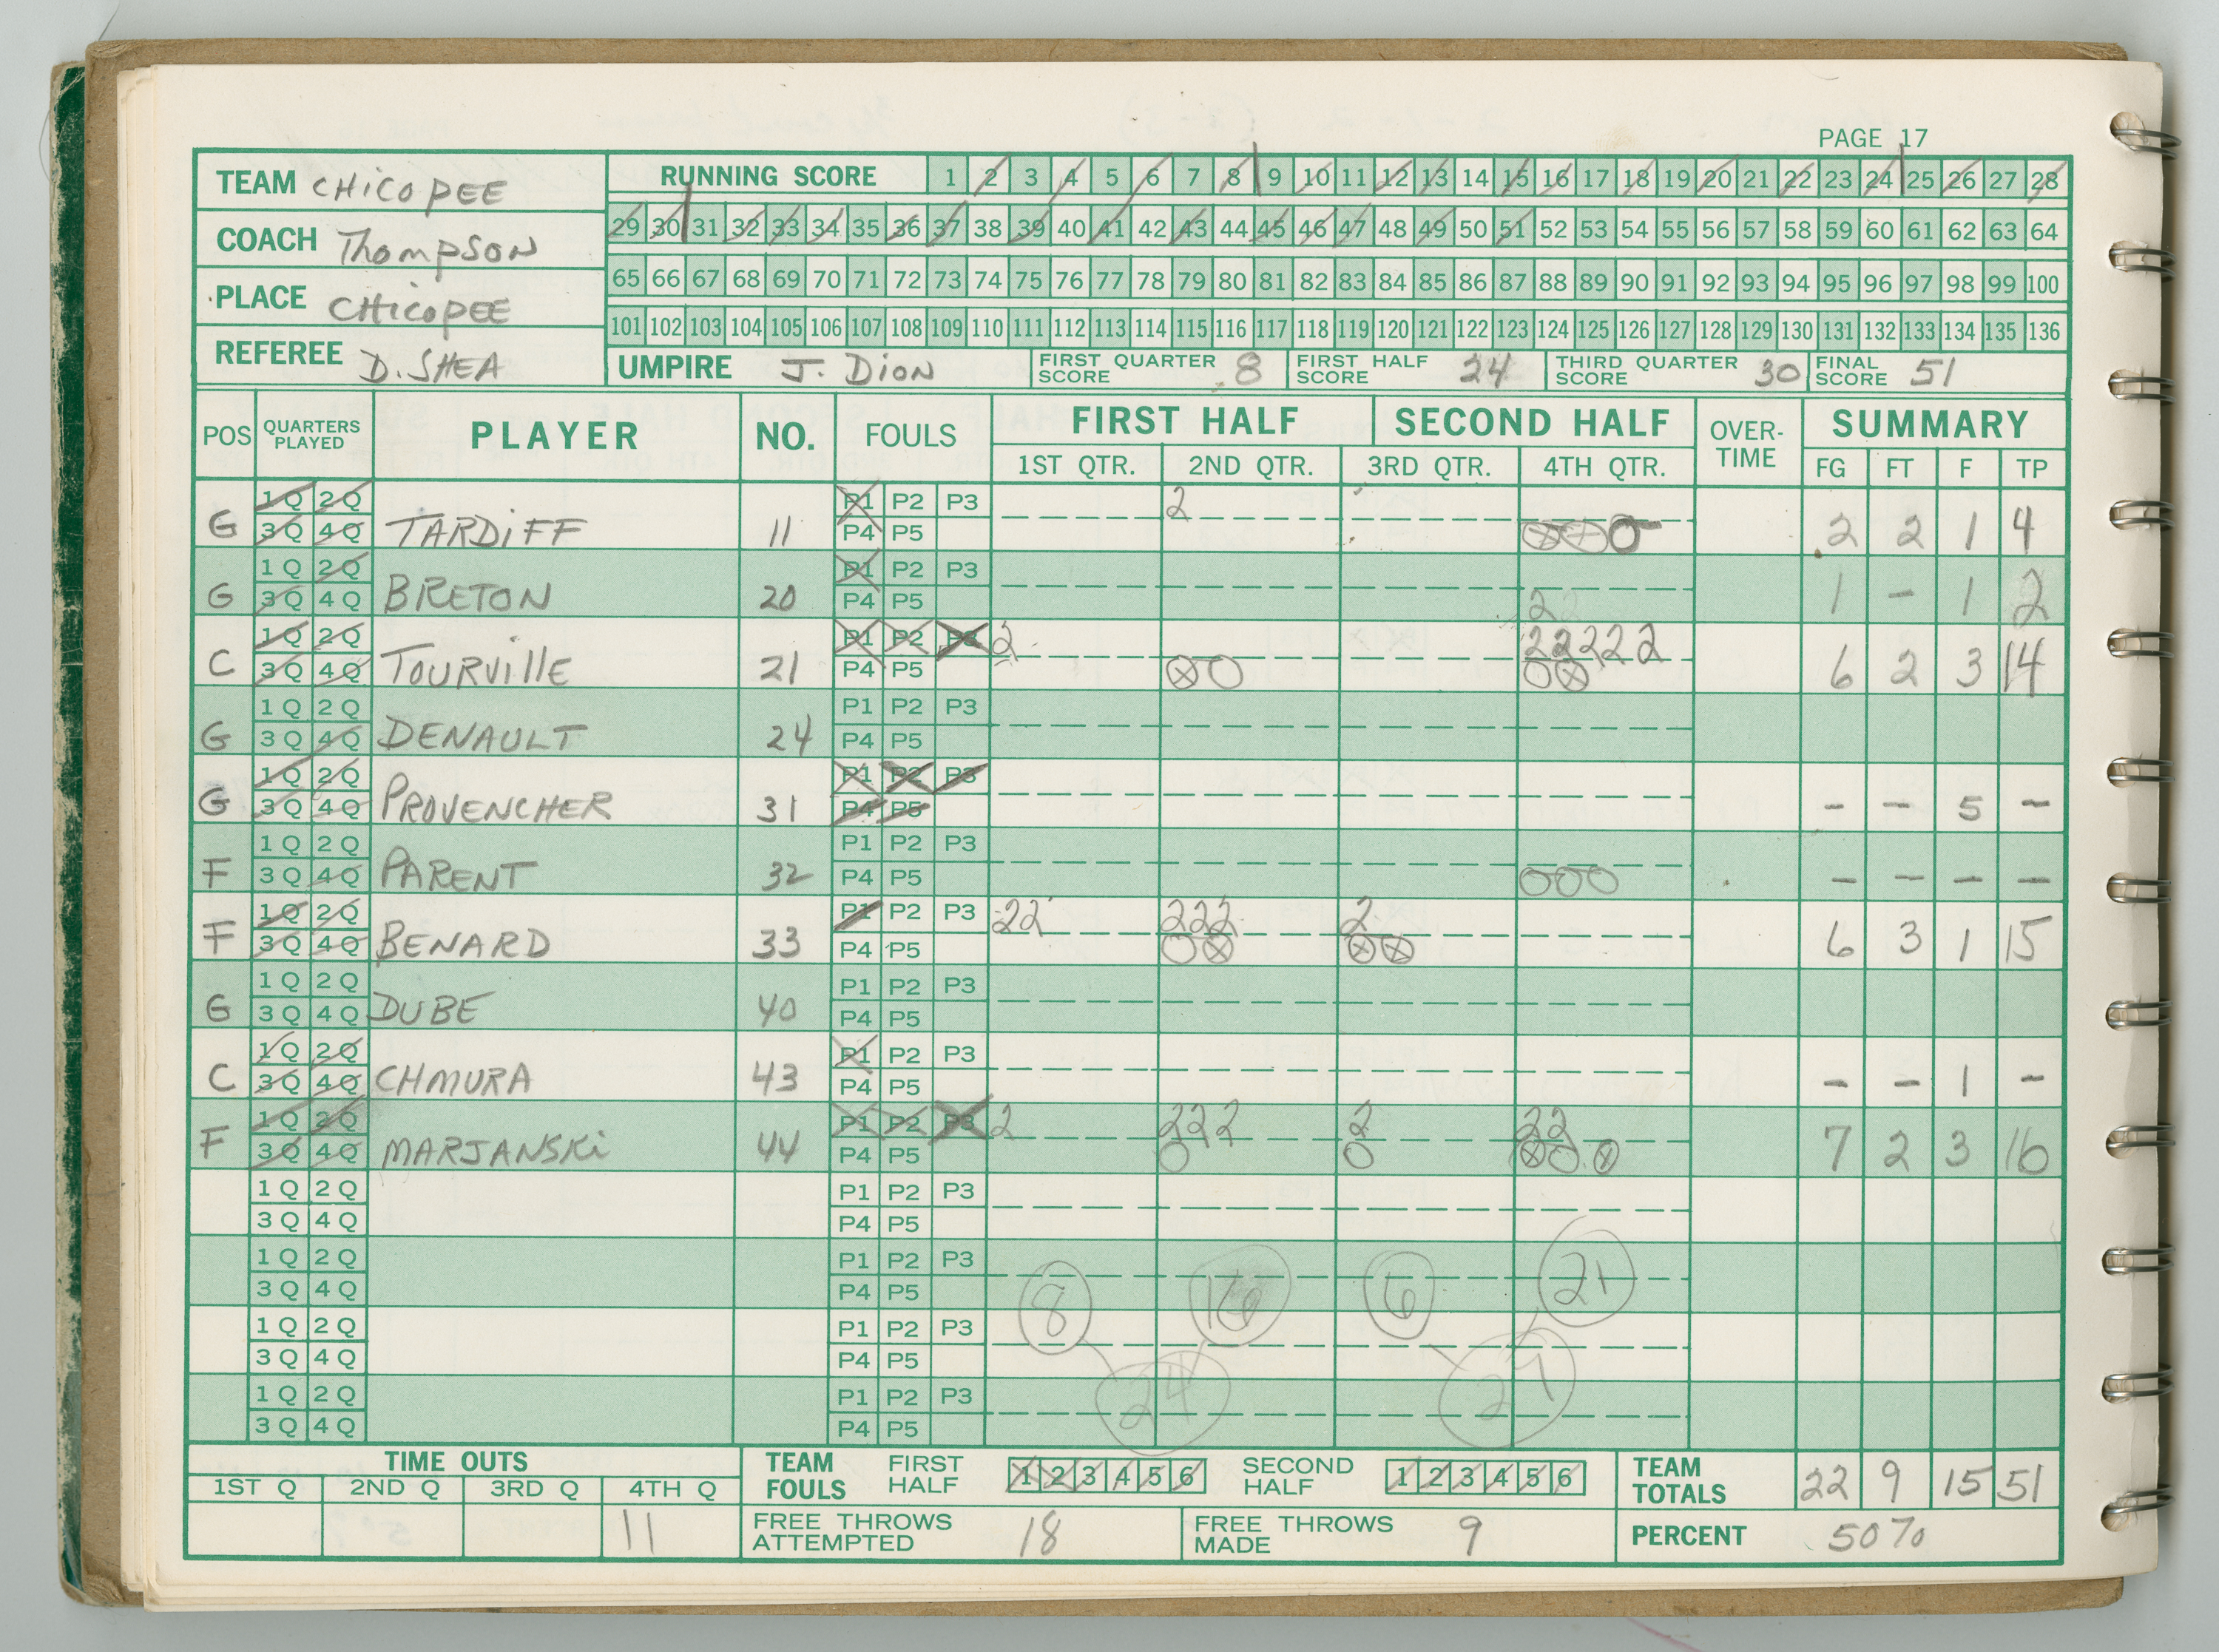 PAGE 17
TEAM CHICOPEE
COACH Thompson
PLACE CHICOPEE
REFEREE D. SHEA
RUNNING SCORE 1 2 3 4 5 6 7 8 9 10 11 12 13 14 15 16 17 18 19 20 21 22 23 24 25 26 27 28
29 30 31 32 33 34 35 36 37 38 39 40 41 42 43 44 45 46 47 48 49 50 51 52 53 54 55 56 57 58 59 60 61 62 63 64
65 66 67 68 69 70 71 72 73 74 75 76 77 78 79 80 81 82 83 84 85 86 87 88 89 90 91 92 93 94 95 96 97 98 99 100
101 102 103 104 105 106 107 108 109 110 111 112 113 114 115 116 117 118 119 120 121 122 123 124 125 126 127 128 129 130 131 132 133 134 135 136
UMPIRE J. DION FIRST QUARTER SCORE 8 FIRST HALF SCORE 24 THIRD QUARTER SCORE 30 FINAL SCORE 51
POS QUARTERS PLAYED PLAYER NO. FOULS FIRST HALF SECOND HALF OVER-TIME SUMMARY
1ST QTR. 2ND QTR. 3RD QTR. 4TH QTR. FG FT F TP
1Q 2Q P1 P2 P3 2
G 3Q 4Q TARDIFF 11 P4 P5 2 2 1 4
1Q 2Q P1 P2 P3
G 3Q 4Q BRETON 20 P4 P5 2 1 - 1 2
1Q 2Q P1 P2 P3 2 2 2 2 2 2
C 3Q 4Q TOURVIllE 21 P4 P5 6 2 3 14
1Q 2Q P1 P2 P3
G 3Q 4Q DENAULT 24 P4 P5
1Q 2Q P1 P2 P3
G 3Q 4Q PROVENCHER 31 P4 P5 - - 5 -
1Q 2Q P1 P2 P3
F 3Q 4Q PARENT 32 P4 P5 - - - -
1Q 2Q P1 P2 P3 22 222 2
F 3Q 4Q BENARD 33 P4 P5 6 3 1 15
1Q 2Q P1 P2 P3
G 3Q 4Q DUBE 40 P4 P5
1Q 2Q P1 P2 P3
C 3Q 4Q CHMURA 43 P4 P5 - - 1 -
1Q 2Q P1 P2 P3 2 222 2 22
F 3Q 4Q MARJANSKi 44 P4 P5 7 2 3 16
1Q 2Q P1 P2 P3
3Q 4Q P4 P5
1Q 2Q P1 P2 P3
3Q 4Q P4 P5 8 16 6 21
1Q 2Q P1 P2 P3
3Q 4Q P4 P5
1Q 2Q P1 P2 P3 24 27
3Q 4Q P4 P5
TIME OUTS
1ST Q 2ND Q 3RD Q 4TH Q
11
TEAM FOULS FIRST HALF 1 2 3 4 5 6 SECOND HALF 1 2 3 4 5 6 TEAM TOTALS 22 9 15 51
FREE THROWS ATTEMPTED 18 FREE THROWS MADE 9 PERCENT 50%